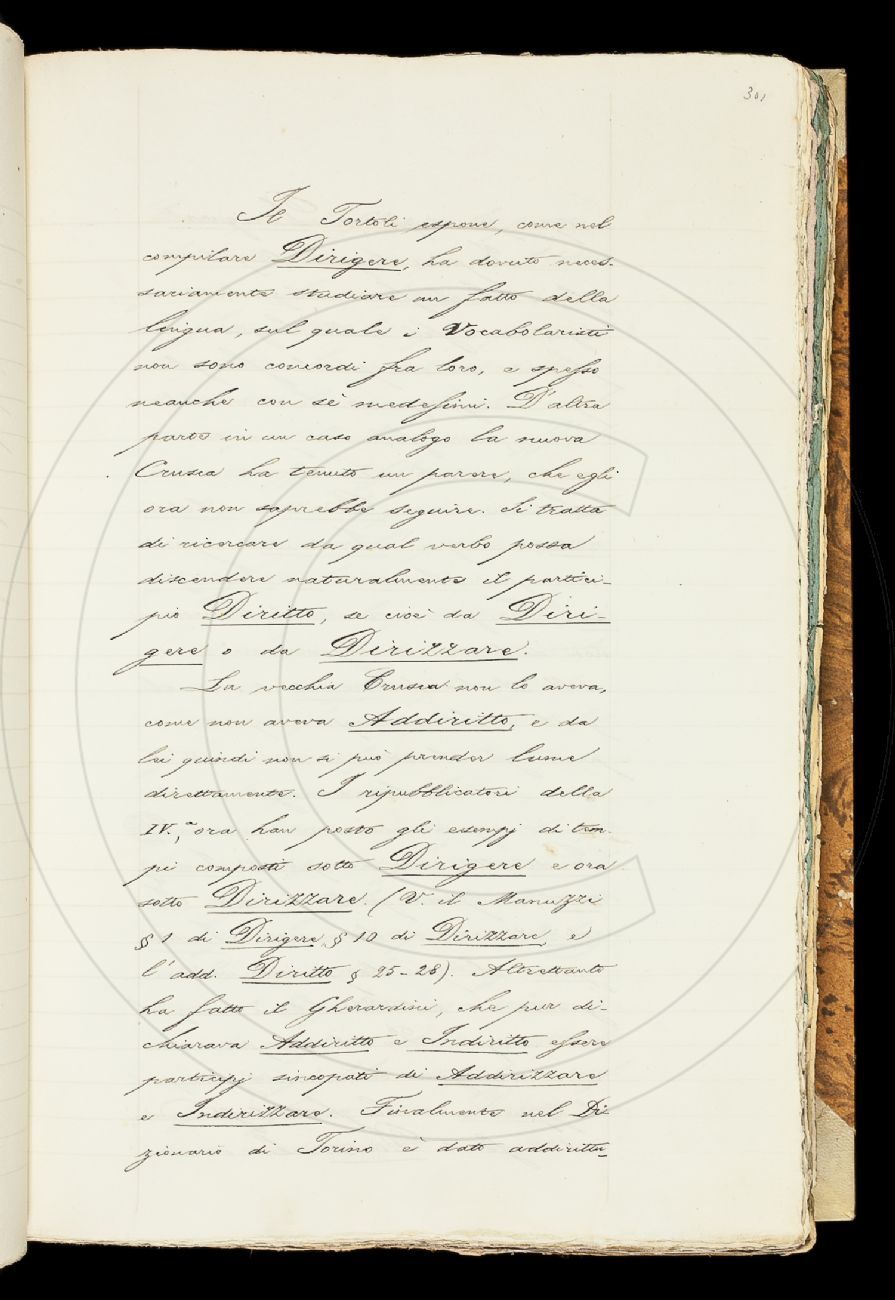 301
Il Tortoli espone, come nel
compilare Dirigere, ha dovuto neces-
sariamente studiare un fatto della
lingua, sul quale i Vocabolaristi
non sono concordi fra loro, e spesso
neanche con sè medesimi. D'altra
parte in un caso analogo la nuova
Crusca ha tenuto un parere, che egli
ora non saprebbe seguire. Si tratta
di ricercare da qual verbo possa
discendere naturalmente il partici-
pio Diritto, se cioè da Diri-
gere o da Dirizzare.
La vecchia Crusca non lo aveva,
come non aveva Addiritto, e da
lei quindi non si può prender lume
direttamente. I ripubblicatori della
IV.ª, ora han posto gli esempj di tem-
pi composti sotto Dirigere e ora
sotto Dirizzare. (V. il Manuzzi
§ 1 di Dirigere, § 10 di Dirizzare, e
l'add. Diritto § 25-28). Altrettanto
ha fatto il Gherardini, che pur di-
chiarava Addiritto e Indiritto essere
participj sincopati di Addirizzare
e Indirizzare. Finalmente nel Di-
zionario di Torino è dato addirittu-